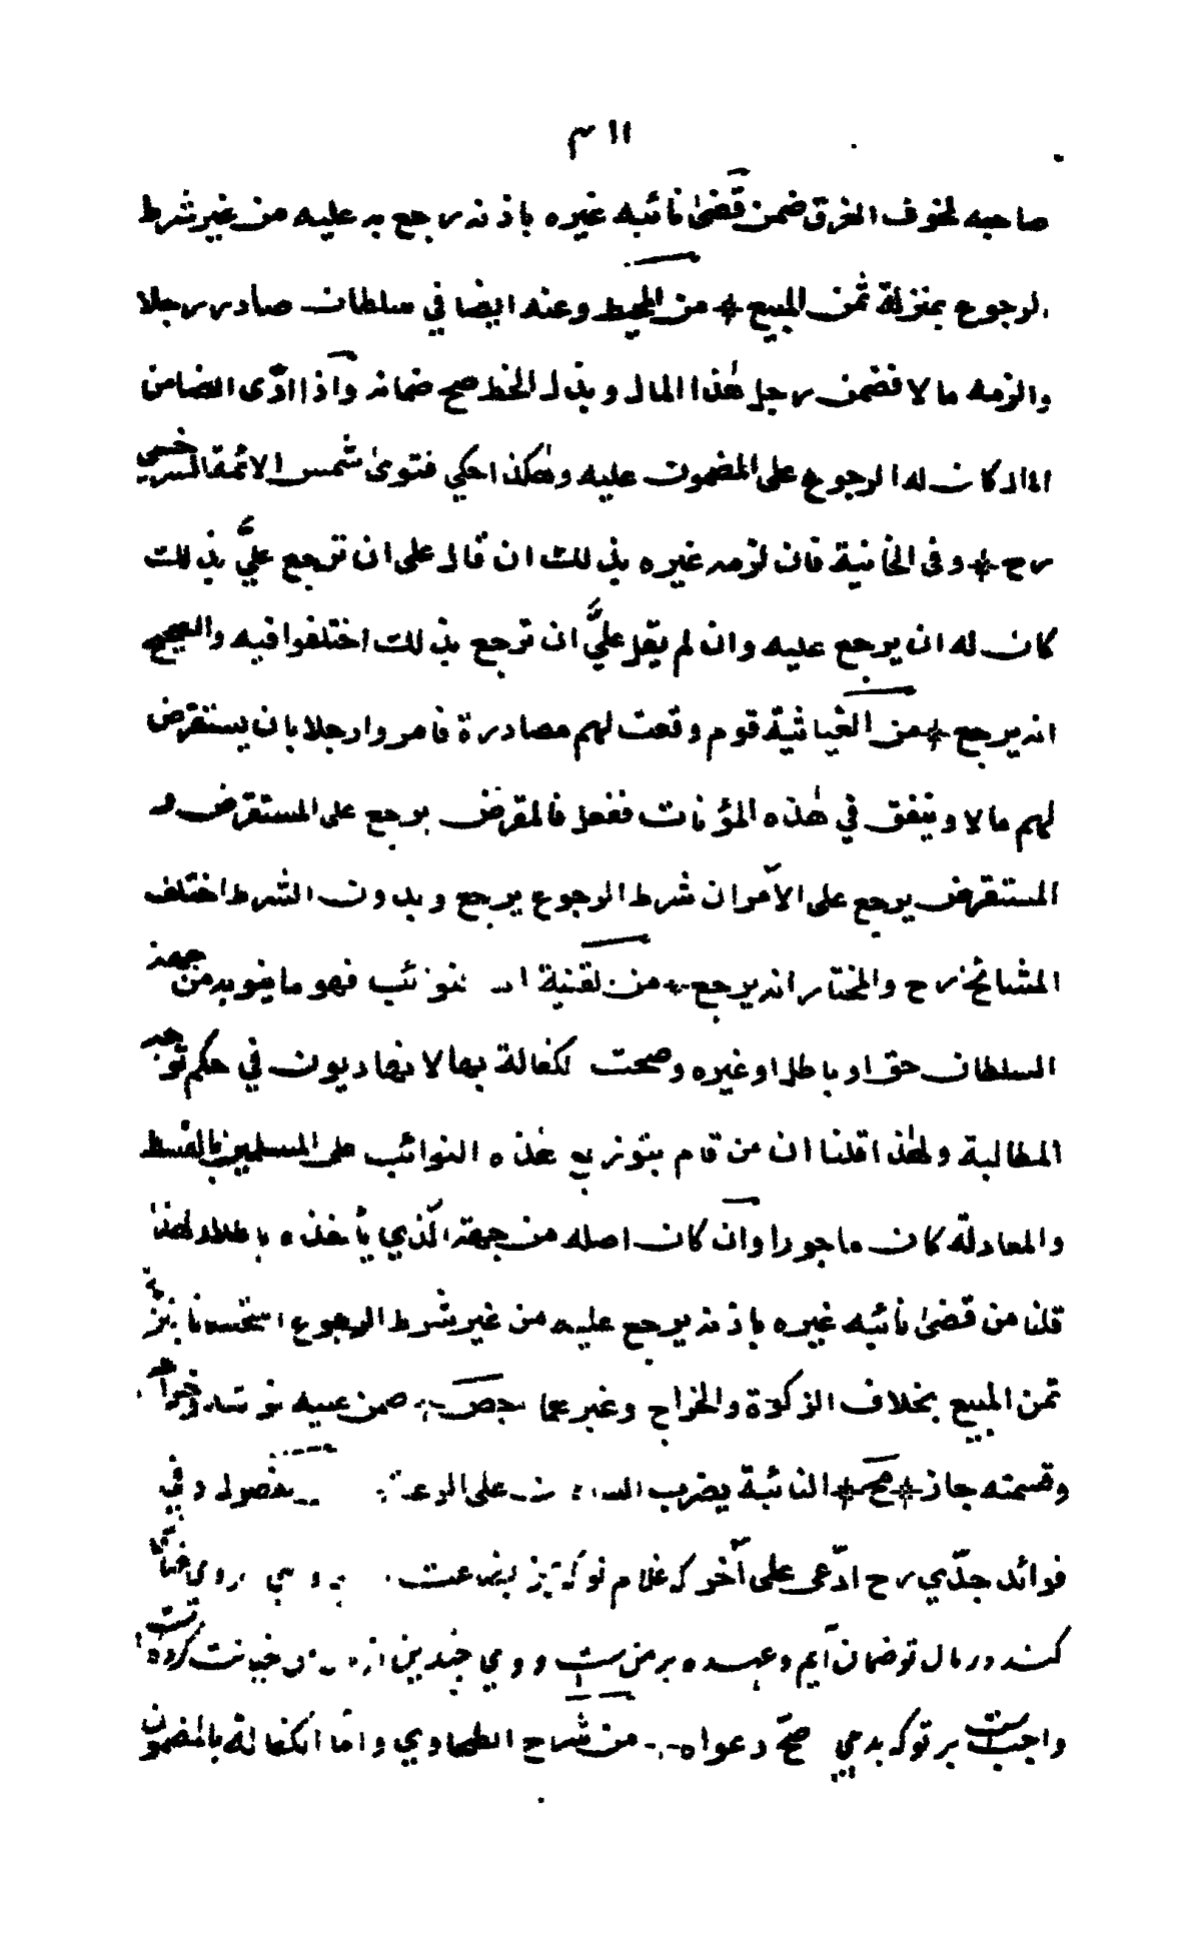 ٣١١
صاحبه لخوف الغرق ضمن قضى نائبه غيره باذنه رجع به عليه من غير شرط
الرجوع بمنزلة ثمن المبيع * من المحيط وعنه ايضا في سلطان صادر رجلا
والزمه مالا فضمن رجل هذا المال وبذل الخط صح ضمانه واذا ادّى الضامن
المال كان له الرجوع على المضمون عليه وهكذا حكي فتوى شمس الائمة السرخسي
رح * وفى الخانية فان لزمه غيره بذلك ان قال على ان ترجع عليّ بذلك
كان له ان يرجع عليه وان لم يقل عليّ ان ترجع بذلك اختلفوا فيه والصحيح
انه يرجع * من الغياثية قوم وقعت لهم مصادرة فامروا رجلا بان يستقرض
لهم مالا وينفق في هذه المؤنات ففعل فالمقرض يرجع على المستقرض و
المستقرض يرجع على الآمر ان شرط الرجوع يرجع وبدون الشرط اختلف
المشائخ رح والمختار انه يرجع * من لقنية نوئب فهو ما ينوبه من جهة
السلطان حق او باطل او غيره وصحت لكفالة بها لانها ديون في حكم توجه
المطالبة ولهذا قلنا ان من قام بتوزيع هذه النوائب على المسلمين بالقسط
والمعادلة كان ماجورا وان كان اصله من جهة الذي يأخذه باطلا ولهذا
قلنا من قضى نائبه غيره باذنه يرجع عليه من غير شرط الرجوع استحسانا بمنزلة
ثمن المبيع بخلاف الزكوة والخراج وغيرهما ضمن عنه نوئبه وخراجه
وقسمته جاز * صح * النائبة يضرب على الرعـ فصول وفي
فوائد جدّي رح ادّعى على آخر كه غلام تو كه روي
كند در مال تو ضمان آيم وعهده بر من ست ووي چندين خيانت كرده است
واجب است بر تو كه بدهي صحّ دعواه * من شراح الطحاوي وامّا الكفالة بالمضمون